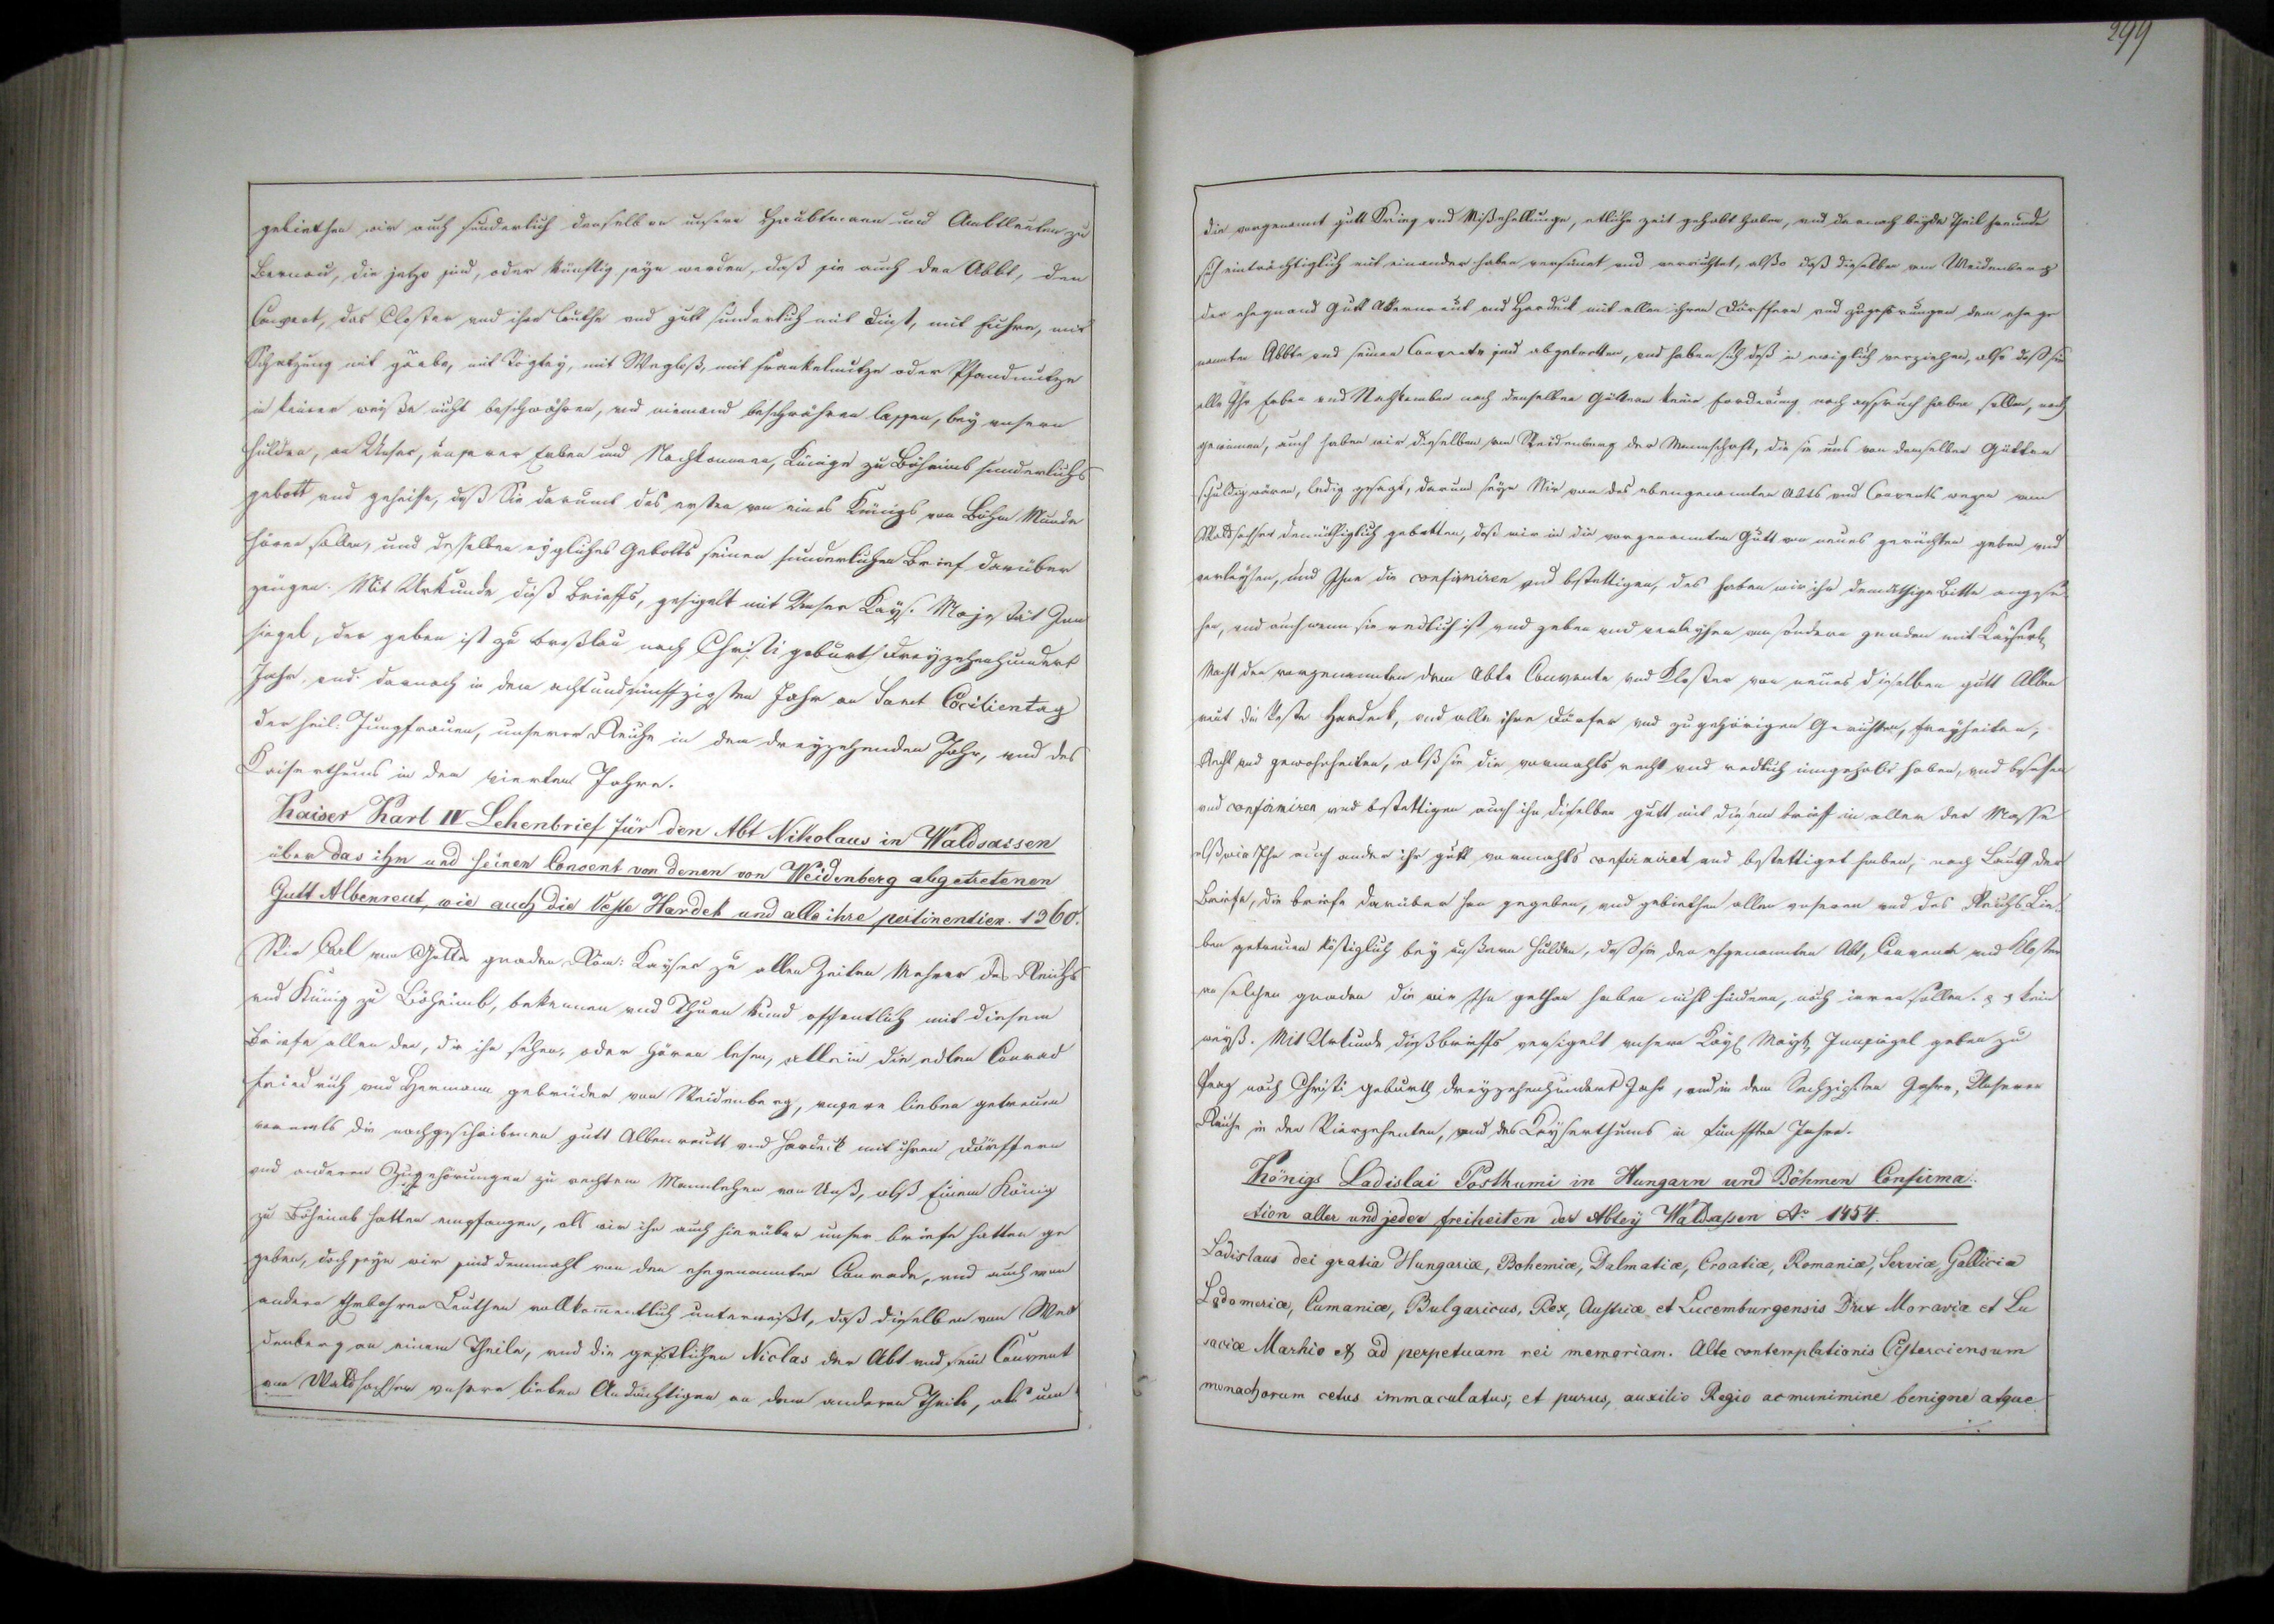 299
gebiethen wir auch sunderlich denselben unsern Haubtmann und Ambtleuten zu
Bernau, die jetzo sind, oder künftig seyn werden, daß sie auch den Abbt, den
Convent, das Closter und ihre Leuthe und gutt sunderlich mit Dinst, mit fuhre, mit
Schatzung mit gäabe, mit Vogtey, mit
in keiner weiße nicht beschwähren, und niemand beschwähren lassen, bey unsern
hulden, an Unser, unserer Erben und Nachkommen, Künige zu Böheimb sunderlichs
gebott und geheiße, daß Sie darumb das ersten von eines Künigs von Böhm Munde
hören sollen, und desselben eyglichs Gebotts seinen sunderlichen Brief darüber
zeugen. Mit Urkunde diß Brieffs, gesigelt mit Unser Kays. Majestät Inn
siegel, der geben ist zu Breßlau nach Christi geburth dreyzehenhundert
Jahr, und darnach in dem achtundfünffzigsten Jahr an Sanct Cäcilientag
der heil: Jungfrauen, unserer Reiche in dem dreyzehenden Jahr, und des
Kaiserthums in den vierten Jahre.
Kaiser Karl IV Lehenbrief für den Abt Nikolaus in Waldsassen
über das ihm und seinen Convent von denen von Weidenberg abgetretenen
Gutt Albenreut, wie auch die Veste Hardek und alle ihre pertinentien. 1360.
Wir Carl von Gotts gnaden Röm: Kayser zu allen Zeiten Mehrer des Reichs
und Künig zu Böheimb, bekennen und Thuen kund offentlich mit diesem
Briefe allen den, die ihn sehen, oder hören lesen, allein die edlen Conrad
Friedrich und Hermann gebrüder von Weidenberg, unsere lieben getreuen
vormals die nachgeschribenen gutt Albenreutt und Hardeck mit ihren Dörffern
und anderen Zugehörungen zu rechtem Mannlehen von Unß, alß Einem König
zu Böheimb hatten empfangen, als wir ihn auch hierüber unser briefe hatten ge
geben, doch seyn wir sind demmahl von den ehegenannten Conrade, und auch von
andern Leuthen vollkommentlich unterweißt, daß dieselben von Wei
denberg an einem Theile, und die geistlichen Niclas der Abt und sein Convent
von Waldsachsen unsere lieben Andächtigen an dem anderen Theile, als um
die vorgenannt gutt Krieg und Mißhellunge, etliche zeit gehabt haben, und darnach beyde Theil freunde
sich einträchtiglich mit einander haben versünet und verrichtet, alßo daß dieselben von Weidenberg
der ehegnand Gutt Albernreut und Hardeck mit allen ihren Dörffern und zugehörungen dem ehege
nannten Abbte und seinen Convente sind abgetretten, und haben sich deß in ewiglich verziehen, also daß sie
alle Ihr Erben und Nachkomben nach denselben Güttern keine forderung noch anspruch haben sollen, noch
gewinnen, auch haben wir dieselben von Weidenberg der Mannschaft, die sie uns von demselben Gütten
schuldig wären, ledig gesagt, darum seyn Wir von des obengenannten Abts und Convents wegen von
Waldsachsen demüthiglich gebetten, daß wir in die vorgenannten Gütt von neues geruchten geben und
verleyhen, und Ihn die confirmiren und bestettigen, des haben wir ihr demüthige Bitte angese
hen, und auch wann sie redlich ist und geben und verleyhen von sondern gnaden mit Kayserl.
Macht den vorgenannten dem Abte Convente und Kloster von neues dieselben gutt Alben
reut die Veste Hardeck, und alle ihre Dörfer und zugehörigen Gerichten, freyheiten,
Recht und gewohnheiten, alß sie die vormahls recht und redlich inngehabt haben, und besesen
und confirmiren und bestettigen auch ihn dieselben gutt mit diesem brieff in aller der Masse
alß wir Ihn auch ander ihr gutt vormahls confirmiret und bestettiget haben, nach Lauth der
Briefe, die briefe darüber han gegeben, und gebiethen allen unseren und des Reichs Lie-
ben getreuen bey unßern hulden, daß sie den ehgenannten Abt, Convente und Kloster
an solchen gnaden die wir Ihn gethan haben nicht hindern, noch irren sollen. in kein
weyß. Mit Urkunde dißbrieffs versigelt unsern Kayl. Mayt. Innsiegel geben zu
Prag nach Christi geburth dreyzehenhundert Jahr, und in dem Sechzigsten Jahre, Unserer
Reiche in den Vierzehenten, und des Kayserthums in fünfften Jahre.
Königs Ladislai Posthumi in Hungarn und Böhmen Confirma-
tion aller und jeder freiheiten der Abtey Waldsassen Ao 1454.
Ladislaus dei gratia Hungariæ, Bohemiæ, Dalmatiæ, Croatiæ, Romaniæ, Serviæ, Galliciæ
Lodomeriæ, Cumaniæ, Bulgaricus, Rex, Austriæ et Lucemburgensis Dux Moraviæ et Lu
saciæ Marhio &c ad perpetuam rei memoriam. Alte contemplationis Cisterciensum
monachorum cetus immaculatus, et purus, auxilio Regio ac munimine benigne atque